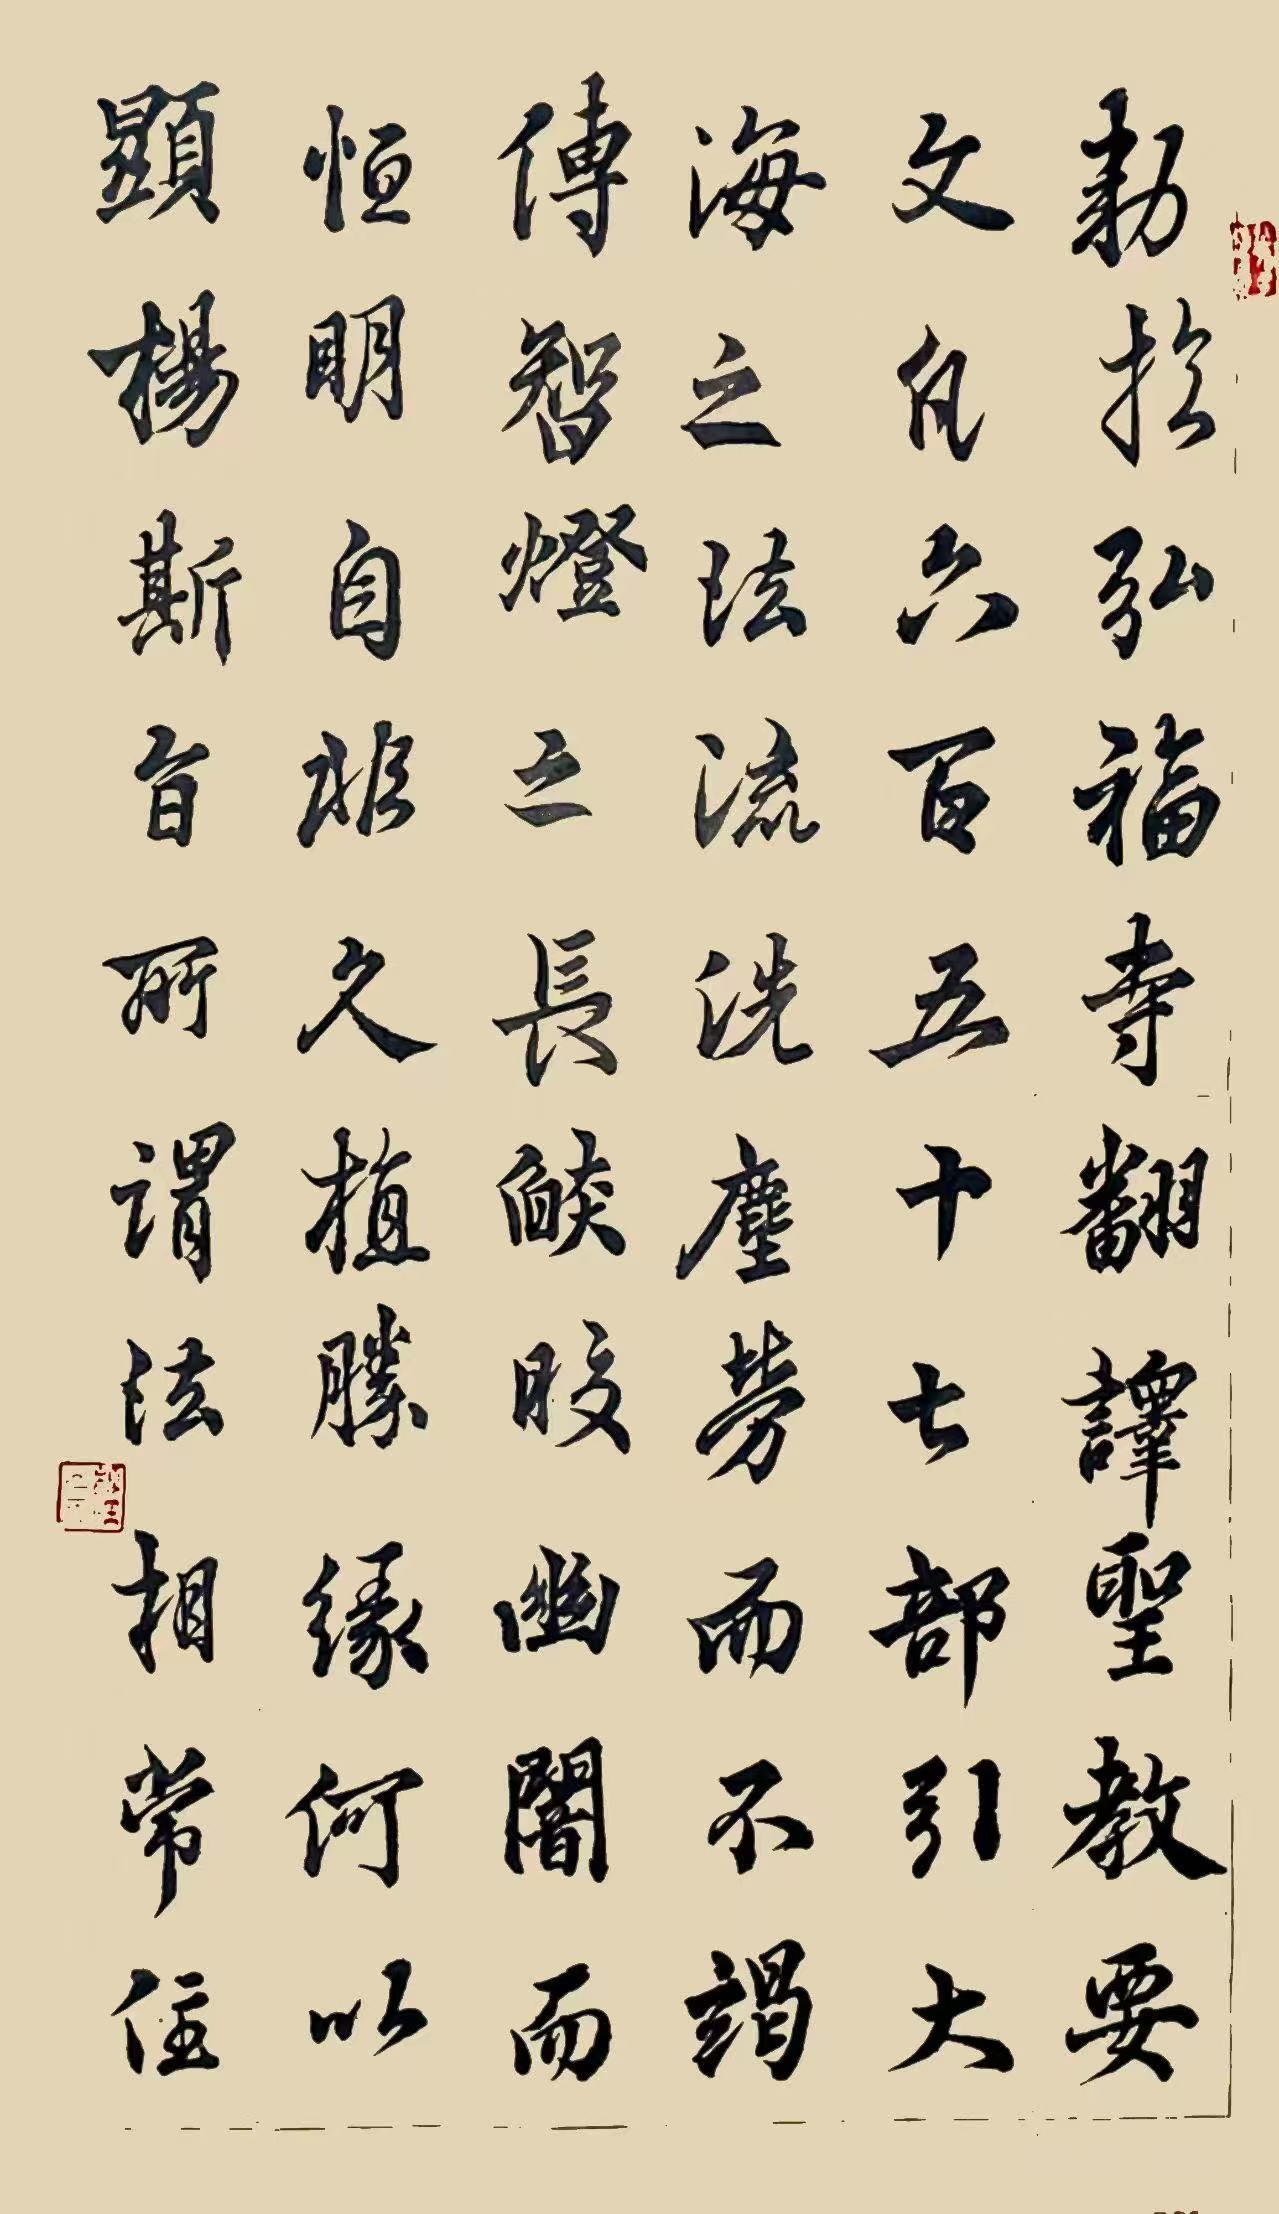 勅於弘福寺翻譯聖教要
文凡六百五十七部引大
海之法流洗塵勞而不竭
傳智燈之長焰皎幽闇而
恒明自非久植勝緣何以
顯揚斯旨所謂法相常住